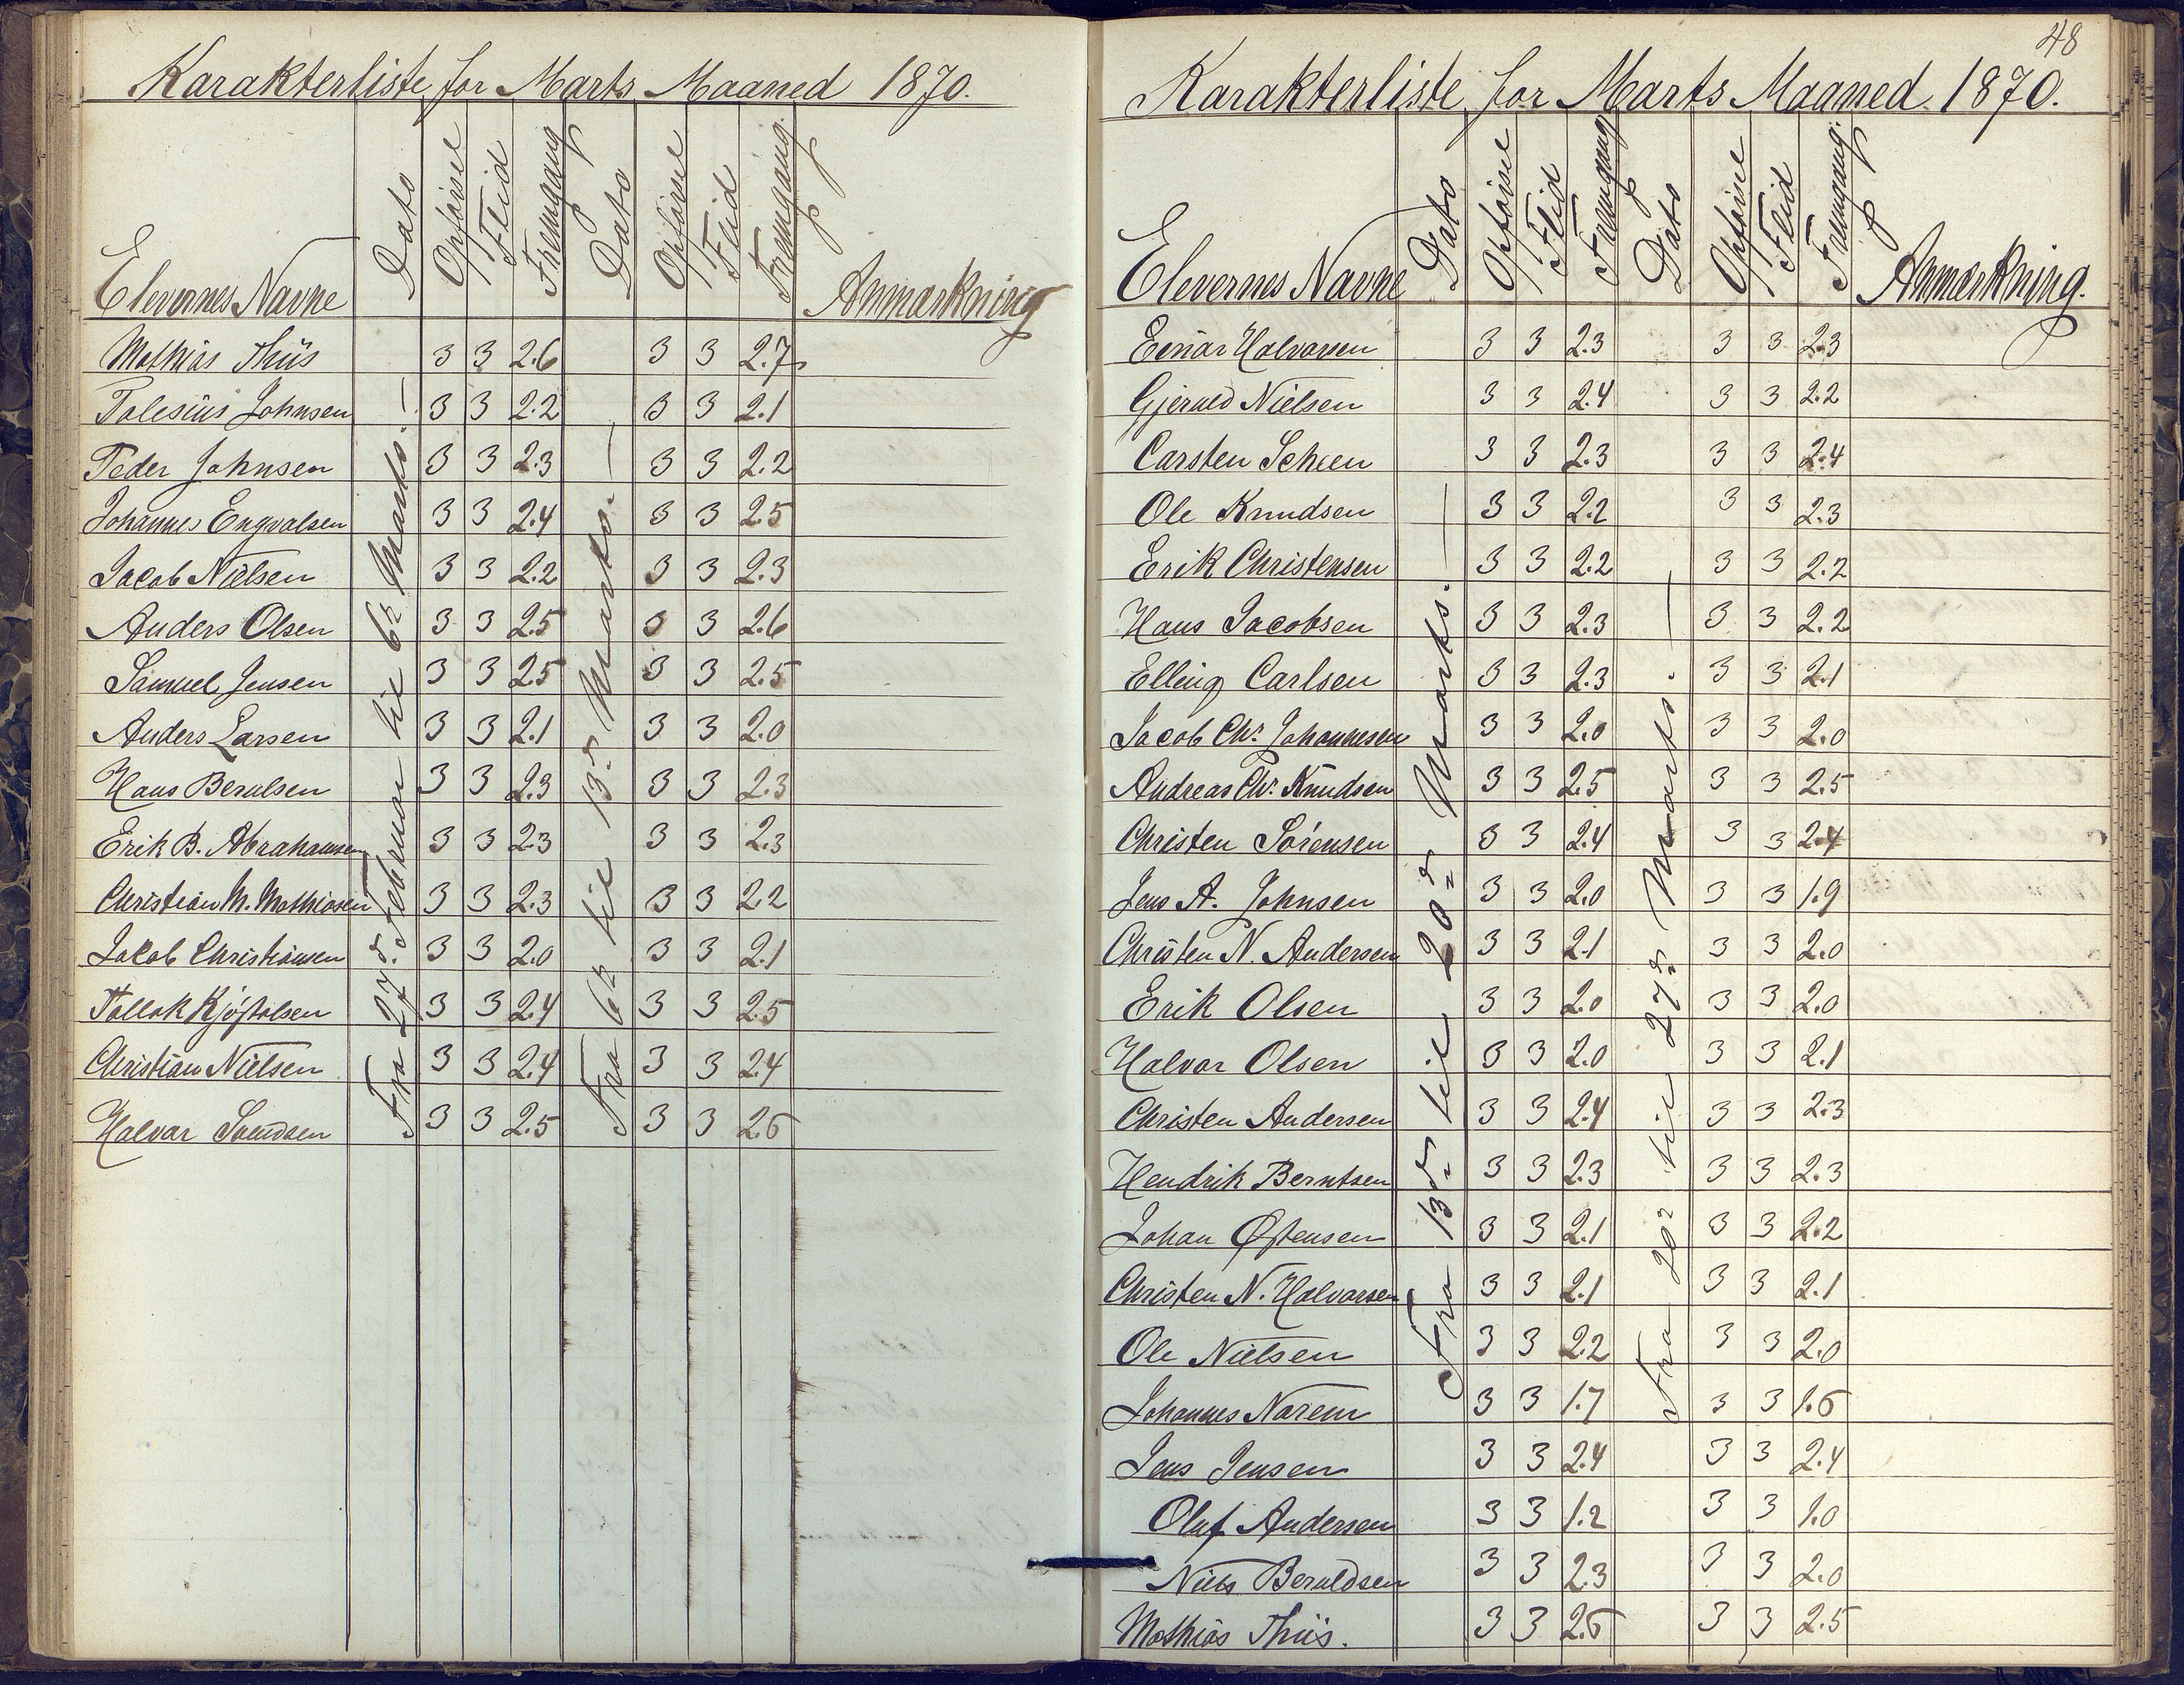 Karakterliste for Marts Maaned 1870.
Elevernes Navne Dato Opförsel Flid Fremgang Dato Opförsel Flid Fremgang. Anmærkning
Fra 27de Februar til 6te Marts. —
Fra 6te til 13de Marts. —
Mathias Thiis 3 3 2.6 3 3 2.7
Tolesius Johnsen 3 3 2.2 3 3 2.1
Peder Johnsen 3 3 2.3 3 3 2.2
Johannes Engvalsen 3 3 2.4 3 3 2.5
Jacob Nielsen 3 3 2.2 3 3 2.3
Anders Olsen 3 3 2.5 3 3 2.6
Samuel Jensen 3 3 2.5 3 3 2.5
Anders Larsen 3 3 2.1 3 3 2.0
Hans Berulsen 3 3 2.3 3 3 2.3
Erik B. Abrahamsen 3 3 2.3 3 3 2.3
Christian M. Mathiasen 3 3 2.3 3 3 2.2
Jacob Christiansen 3 3 2.0 3 3 2.1
Tallak Kjöstolsen 3 3 2.4 3 3 2.5
Christian Nielsen 3 3 2.4 3 3 2.4
Halvar Svendsen 3 3 2.5 3 3 2.5
48
Karakterliste for Marts Maaned 1870.
Elevernes Navne Dato Opförsel Flid Fremgang Dato Opförsel Flid Fremgang. Anmærkning.
Fra 13de til 20de Marts. —
Fra 20de til 27de Marts. —
Einar Halvorsen 3 3 2.3 3 3 2.3
Gjeruld Nielsen 3 3 2.4 3 3 2.2
Carsten Scheen 3 3 2.3 3 3 2.4
Ole Knudsen 3 3 2.2 3 3 2.3
Erik Christensen 3 3 2.2 3 3 2.2
Hans Jacobsen 3 3 2.3 3 3 2.2
Elling Carlsen 3 3 2.3 3 3 2.1
Jacob Chr. Johannesen 3 3 2.0 3 3 2.0
Andreas Chr. Knudsen 3 3 2.5 3 3 2.5
Christen Sörensen 3 3 2.4 3 3 2.4
Jens A. Johnsen 3 3 2.0 3 3 1.9
Christen N. Andersen 3 3 2.1 3 3 2.0
Erik Olsen 3 3 2.0 3 3 2.0
Halvor Olsen 3 3 2.0 3 3 2.1
Christen Andersen 3 3 2.4 3 3 2.3
Hendrik Berntsen 3 3 2.3 3 3 2.3
Johan Østensen 3 3 2.1 3 3 2.2
Christen N. Halvorsen 3 3 2.1 3 3 2.1
Ole Nielsen 3 3 2.2 3 3 2.0
Johannes Narem 3 3 1.7 3 3 1.5
Jens Jensen 3 3 2.4 3 3 2.4
Oluf Andersen 3 3 1.2 3 3 1.0
Niels Beruldsen 3 3 2.3 3 3 2.0
Mathias Thiis. 3 3 2.5 3 3 2.5